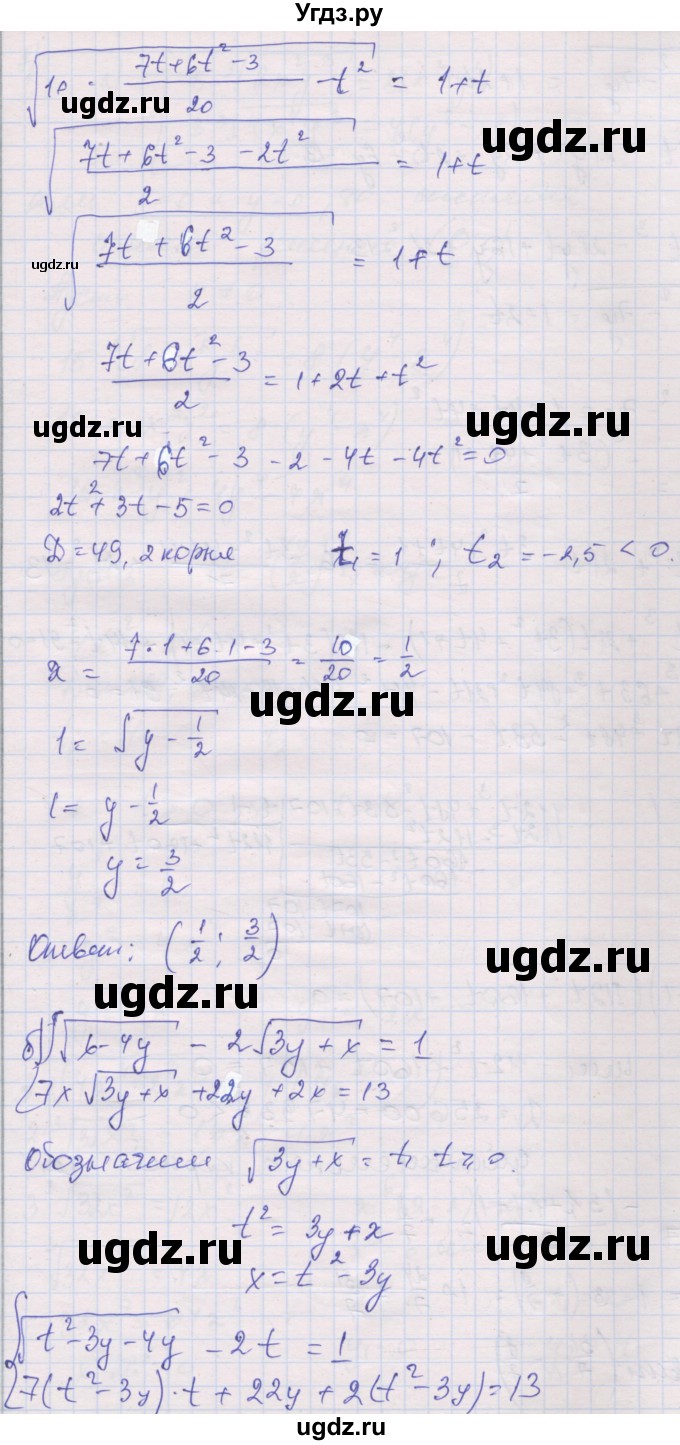 Угдз.ру
√(10 · (7t+6t²-3)/20 - t²) = 1+t
ugdz.ru
ugdz.ru
√((7t+6t²-3-2t²)/2) = 1+t
√((7t+6t²-3)/2) = 1+t
ugdz.ru
ugdz.ru
(7t+6t²-3)/2 = 1+2t+t²
ugdz.ru
ugdz.ru
7t+6t²-3-2-4t-4t²=0
2t²+3t-5=0
D=49, 2 корня t₁=1 ; t₂=-2,5<0.
ugdz.ru
x = (7·1+6·1-3)/20 = 10/20 = 1/2
ugdz.ru
1= √(y-1/2)
1= y-1/2
ugdz.ru
y=3/2
Ответ: (1/2; 3/2)
ugdz.ru
ugdz.ru
б) {√(x-4y) - 2√(3y+x) = 1
7x√(3y+x) +22y+2x=13
ugdz.ru
Обозначим √(3y+x) = t, t≥0.
t² = 3y+x
ugdz.ru
ugdz.ru
x=t²-3y
{√(t²-3y-4y) - 2t = 1
7(t²-3y)·t+22y+2(t²-3y)=13
ugdz.ru
ugdz.ru